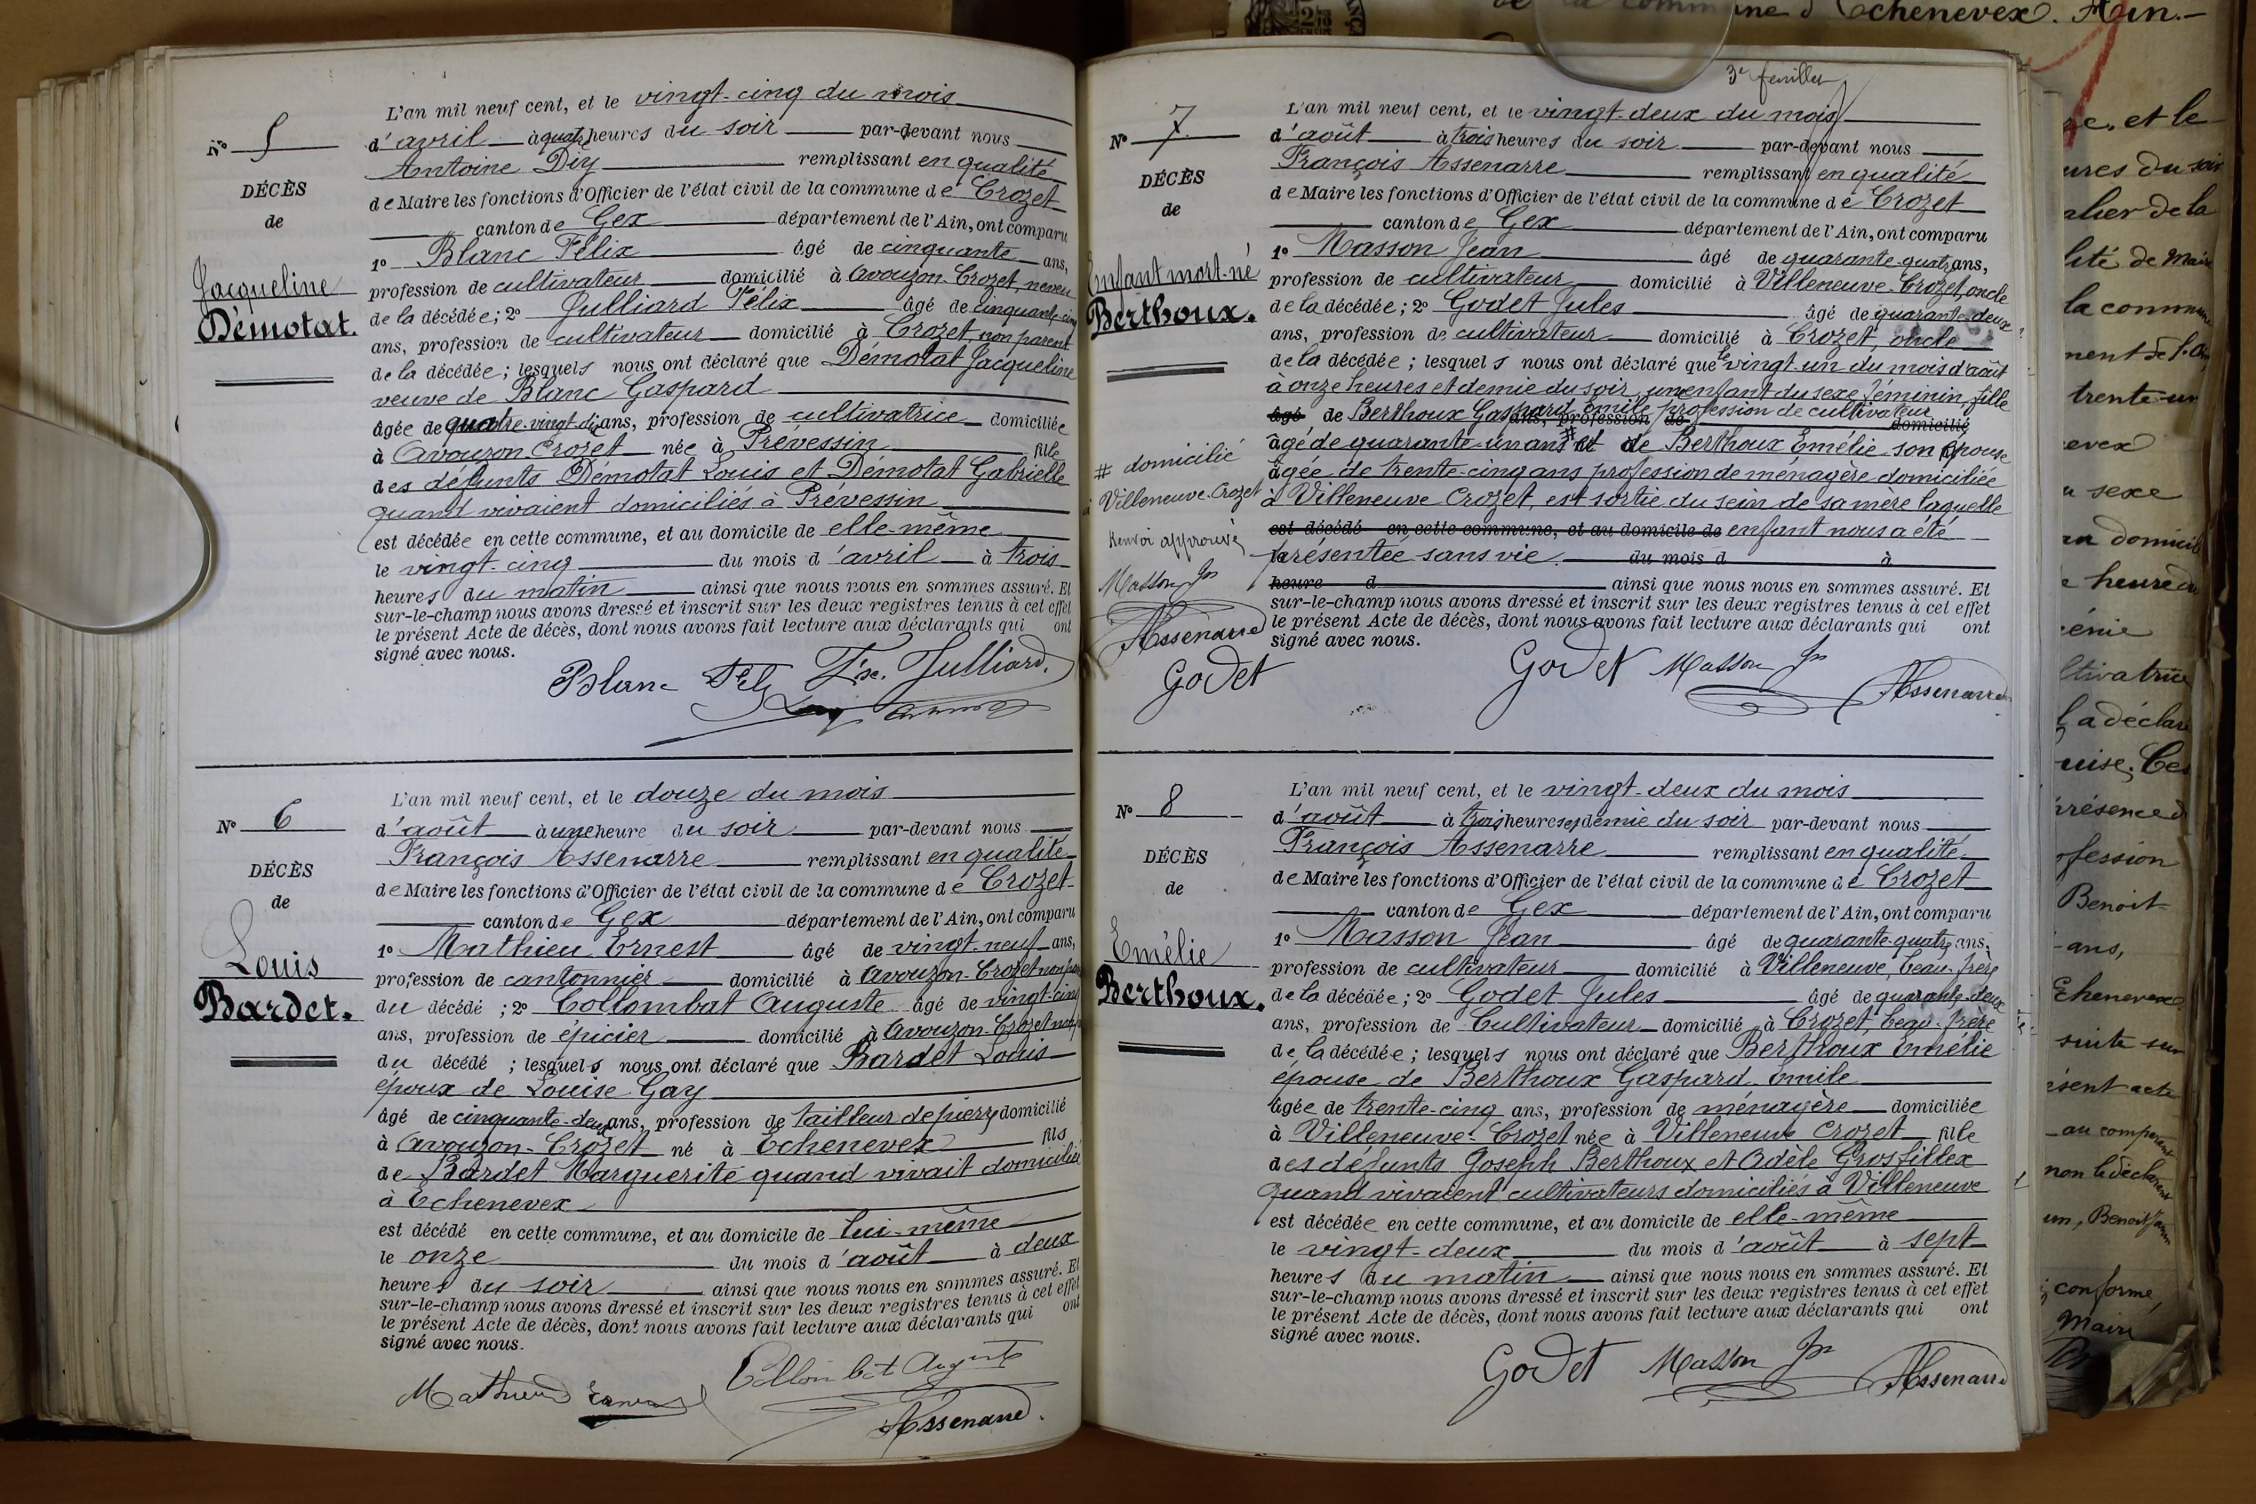 N° 5
DÉCÈS
de
Jacqueline
Démotat.
L'an mil neuf cent, et le vingt-cinq du mois
d'avril à quatre heures du soir par-devant nous
Antoine Diy remplissant en qualité
de Maire les fonctions d'Officier de l'état civil de la commune de Crozet
canton de Gex département de l'Ain, ont comparu
1° Blanc Félix âgé de cinquante ans,
profession de cultivateur domicilié à Avouzon-Crozet, neveu
de la décédée; 2° Julliard Félix âgé de cinquante-cinq
ans, profession de cultivateur domicilié à Crozet, non parent
de la décédée; lesquels nous ont déclaré que Démotat Jacqueline
veuve de Blanc Gaspard
âgée de quatre-vingt-dix ans, profession de cultivatrice domiciliée
à Avouzon Crozet née à Prévessin fille
des défunts Démotat Louis et Démotat Gabrielle
quand vivaient domiciliés à Prévessin
est décédée en cette commune, et au domicile de elle-même
le vingt-cinq du mois d'avril à trois
heures du matin ainsi que nous nous en sommes assuré. Et
sur-le-champ nous avons dressé et inscrit sur les deux registres tenus à cet effet
le présent Acte de décès, dont nous avons fait lecture aux déclarants qui ont
signé avec nous.
Blanc Félix Fx. Julliard.
N° 6
DÉCÈS
de
Louis
Bardet.
L'an mil neuf cent, et le douze du mois
d'août à une heure du soir par-devant nous
François Assenarre remplissant en qualité
de Maire les fonctions d'Officier de l'état civil de la commune de Crozet
canton de Gex département de l'Ain, ont comparu
1° Mathieu Ernest âgé de vingt-neuf ans,
profession de cantonnier domicilié à Avouzon-Crozet non parent
du décédé; 2° Collombat Auguste âgé de vingt-cinq
ans, profession de épicier domicilié à Avouzon-Crozet non p
du décédé; lesquels nous ont déclaré que Bardet Louis
époux de Louise Gay
âgé de cinquante-deux ans, profession de tailleur de pierre domicilié
à Avouzon-Crozet né à Echenevex fils
de Bardet Marguerite quand vivait domiciliée
à Echenevex
est décédé en cette commune, et au domicile de lui-même
le onze du mois d'août à deux
heures du soir ainsi que nous nous en sommes assuré. Et
sur-le-champ nous avons dressé et inscrit sur les deux registres tenus à cet effet
le présent Acte de décès, dont nous avons fait lecture aux déclarants qui ont
signé avec nous.
Collombat Auguste
Mathieu Ernest
Assenarre.
3e feuillet
N° 7
DÉCÈS
de
Enfant mort-né
Berthoux.
# domicilié
à Villeneuve-Crozet
Renvoi approuvé
Masson Jn
Assenarre
Godet
L'an mil neuf cent, et le vingt-deux du mois
d'août à trois heures du soir par-devant nous
François Assenarre remplissant en qualité
de Maire les fonctions d'Officier de l'état civil de la commune de Crozet
canton de Gex département de l'Ain, ont comparu
1° Masson Jean âgé de quarante-quatre ans,
profession de cultivateur domicilié à Villeneuve-Crozet, oncle
de la décédée; 2° Godet Jules âgé de quarante-deux
ans, profession de cultivateur domicilié à Crozet, oncle
de la décédée; lesquels nous ont déclaré que le vingt-un du mois d'août
à onze heures et demie du soir, un enfant du sexe féminin, fille
âgé de Berthoux Gaspard Emile profession de cultivateur
ans, profession de domicilié
âgé de quarante-un ans # et de Berthoux Emélie son épouse
âgée de trente-cinq ans profession de ménagère domiciliée
à Villeneuve Crozet, est sortie du sein de sa mère laquelle
est décédé en cette commune, et au domicile de enfant nous a été
présentée sans vie. du mois d à
heure d ainsi que nous nous en sommes assuré. Et
sur-le-champ nous avons dressé et inscrit sur les deux registres tenus à cet effet
le présent Acte de décès, dont nous avons fait lecture aux déclarants qui ont
signé avec nous.
Godet Masson Jn Assenarre
N° 8
DÉCÈS
de
Emélie
Berthoux.
L'an mil neuf cent, et le vingt-deux du mois
d'août à trois heures et demie du soir par-devant nous
François Assenarre remplissant en qualité
de Maire les fonctions d'Officier de l'état civil de la commune de Crozet
canton de Gex département de l'Ain, ont comparu
1° Masson Jean âgé de quarante-quatre ans,
profession de cultivateur domicilié à Villeneuve, beau-frère
de la décédée; 2° Godet Jules âgé de quarante-deux
ans, profession de Cultivateur domicilié à Crozet, beau-frère
de la décédée; lesquels nous ont déclaré que Berthoux Emélie
épouse de Berthoux Gaspard Emile
âgée de trente-cinq ans, profession de ménagère domiciliée
à Villeneuve-Crozet née à Villeneuve Crozet fille
des défunts Joseph Berthoux et Adèle Grosfillex
quand vivaient cultivateurs domiciliés à Villeneuve
est décédée en cette commune, et au domicile de elle-même
le vingt-deux du mois d'août à sept
heures du matin ainsi que nous nous en sommes assuré. Et
sur-le-champ nous avons dressé et inscrit sur les deux registres tenus à cet effet
le présent Acte de décès, dont nous avons fait lecture aux déclarants qui ont
signé avec nous.
Godet Masson Jn Assenarre
de la commune d'Echenevex. Ain.-
et le
ures du soir
alier de la
lité de Maire
la commune
ment de l'Ain
trente-un
evex
sexe
domicile
heure du
énie
ltivatrice
a déclaré
uise. Ces
présence d
ofession
Benoit
ans,
Echenevex
suite sur
ésent acte
au comparant
non le déclarant
un, Benoit
conforme,
Maire